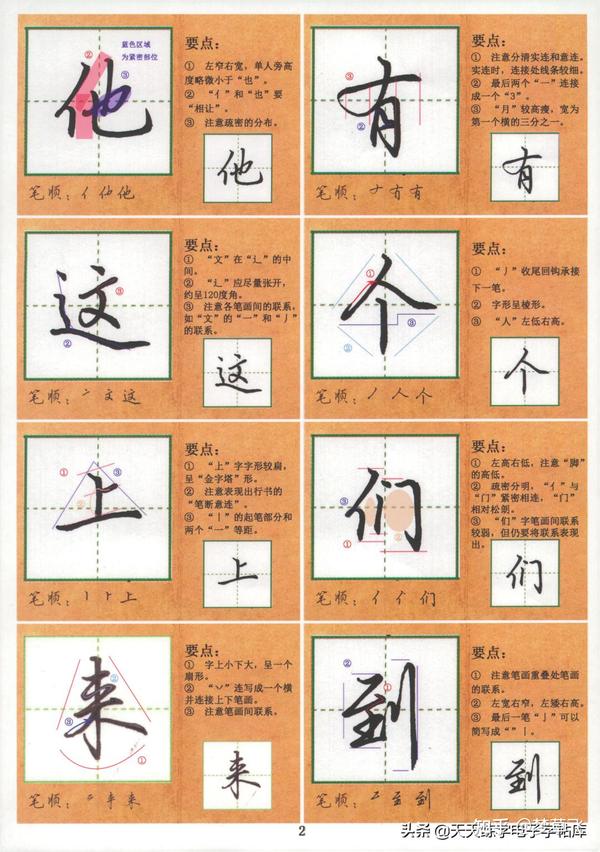 他
②
③
蓝色区域
为紧密部位
要点：
① 左窄右宽，单人旁高
度略微小于“也”。
② “亻”和“也”要
“相让”。
③ 注意疏密的分布。
他
笔顺：亻 仂 他
有
③
②
要点：
① 注意分清实连和意连。
实连时，连接处线条较细。
② 最后两个“一”连接
成一个“3”。
③ “月”较高瘦，宽为
第一个横的三分之一。
有
笔顺：𠂇 冇 有
这
①
③
②
要点：
① “文”在“辶”的中
间。
② “辶”应尽量张开，
约呈120度角。
③ 注意各笔画间的联系，
如“文”的“一”和“丿”
的联系。
这
笔顺：亠 文 这
个
①
③
②
要点：
① “丿”收尾回钩承接
下一笔。
② 字形呈棱形。
③ “人”左低右高。
个
笔顺：丿 人 个
上
①
③
②
要点：
① “上”字字形较扁，
呈“金字塔”形。
② 注意表现出行书的
“笔断意连”。
③ “丨”的起笔部分和
两个“一”等距。
上
笔顺：丨 ⺊ 上
们
③
①
②
要点：
① 左高右低，注意“脚”
的高低。
② 疏密分明，“亻”与
“门”紧密相连，“门”
相对松朗。
③ “们”字笔画间联系
较弱，但仍要将联系表现
出。
们
笔顺：亻 们
来
②
③
①
要点：
① 字上小下大，呈一个
扇形。
② “丷”连写成一个横
并连接上下笔画。
③ 注意笔画间联系。
来
笔顺：来
到
②
①
③
要点：
① 注意笔画重叠处笔画
的联系。
② 左宽右窄，左矮右高。
③ 最后一笔“亅”可以
简写成“丨”。
到
笔顺：至 到
2
头条 @天天练字电子字帖库
知乎